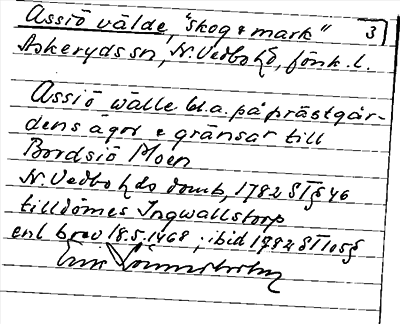 Assiö välde, "skog & mark" 3
Askeryds sn, N. Vedbo hd, Jönk. l.
Assiö wälle bl.a. på prästgår-
dens ägor & gränsar till
Bordsiö Moen
N. Vedbo hds domb, 1782 ST § 46
tilldömes Ingwallstorp
enl brev 18.5.1468; ibid 1782
Erik